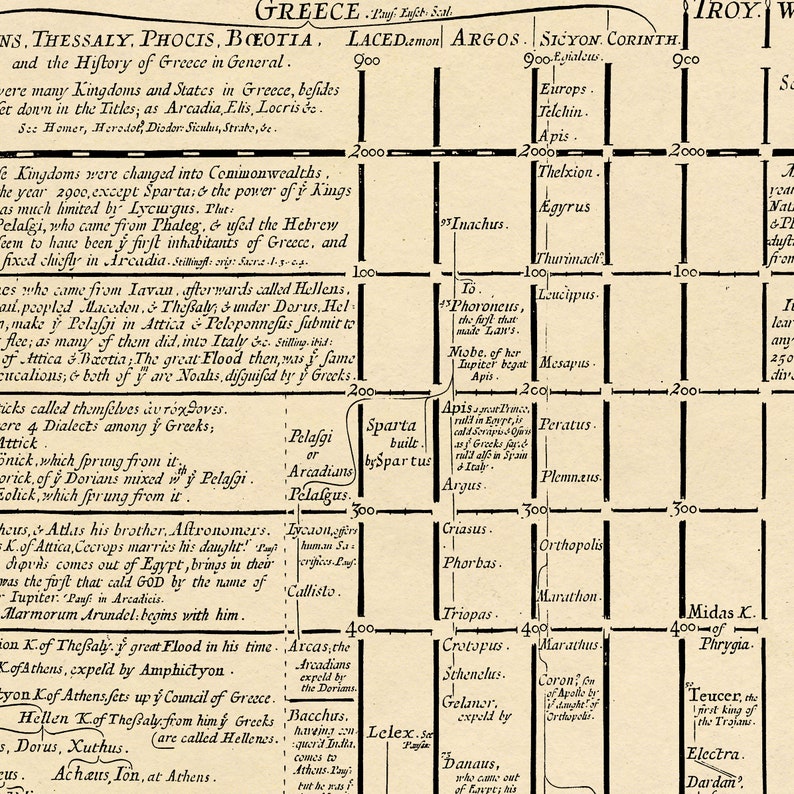 GREECE. Paus: Euseb: Scal:
TROY. W
NS, THESSALY, PHOCIS, BŒOTIA,
LACEDæmon
ARGOS.
SICYON.
CORINTH.
and the History of Greece in General.
900
900
900
Ægialeus.
were many Kingdoms and States in Greece, besides
set down in the Titles; as Arcadia, Elis, Locris &c.
See Homer, Herodot9, Diodor: Siculus, Strabo, &c.
Europs.
Telchin.
Apis.
2000
2000
2000
se Kingdoms were changed into Commonwealths,
he year 2900, except Sparta; & the power of ye Kings
as much limited by Lycurgus. Plut:
Pelasgi, who came from Phaleg, & used the Hebrew
seem to have been ye first inhabitants of Greece, and
fixed chiefly in Arcadia. Stillingfl: orig: Sacræ. l. 3. c. 4.
93 Inachus.
Thelxion.
Ægyrus
Thurimach9.
100
100
100
nes who came from Iavan, afterwards called Hellens,
peopled Macedon, & Thessaly; & under Dorus, Hel-
n, make ye Pelasgi in Attica & Peloponnesus submit to
flee; as many of them did, into Italy &c. Stilling. ibid:
of Attica & Bœotia; The great Flood then, was ye same
eucalions; & both of ym are Noahs, disguised by ye Greeks.
Io.
43 Phoroneus,
the first that
made Laws.
Niobe, of her
Iupiter begat
Apis.
Leucippus.
Mesapus.
200
200
200
ticks called themselves ἀυτόχθονες.
were 4 Dialects among ye Greeks;
Attick.
önick, which sprung from it.
orick, of ye Dorians mixed wth ye Pelasgi.
Eolick, which sprung from it.
Pelasgi
or
Arcadians
Pelasgus.
Sparta
built.
by Spartus
Apis a great Prince,
rul'd in Egypt, is
cal'd Serapis & Osiris
as ye Greeks say, &
rul'd also in Spain
& Italy.
Argus.
Peratus.
Plemnæus.
300
300
300
heus, & Atlas his brother, Astronomers.
K. of Attica, Cecrops marries his daught. Paus:
διφυὴς comes out of Egypt, brings in their
was the first that cal'd GOD by the name of
r Iupiter. Paus: in Arcadicis.
Marmorum Arundel: begins with him.
Lycaon, offers
human Sa-
crifices. Paus.
Callisto.
Criasus.
Phorbas.
Triopas.
Orthopolis
Marathon.
Midas K.
of
Phrygia.
400
400
400
ion K. of Thessaly. ye great Flood in his time.
K. of Athens, expel'd by Amphictyon.
tyon K. of Athens, sets up ye Council of Greece.
Hellen K. of Thessaly: from him ye Greeks
are called Hellenes.
s, Dorus, Xuthus.
eus. Achæus, Iön, at Athens.
Arcas; the
Arcadians
expel'd by
the Dorians.
Bacchus,
having con-
quer'd India,
comes to
Athens. Paus:
but he was ye
Lelex. See
Pausan:
Crotopus.
Sthenelus.
Gelanor,
expel'd by
73 Danaus,
who came out
of Egypt; his
Marathus.
Coron9, son
of Apollo by
ye daught. of
Orthopolis.
50 Teucer, the
first king of
the Trojans.
Electra.
Dardan9.